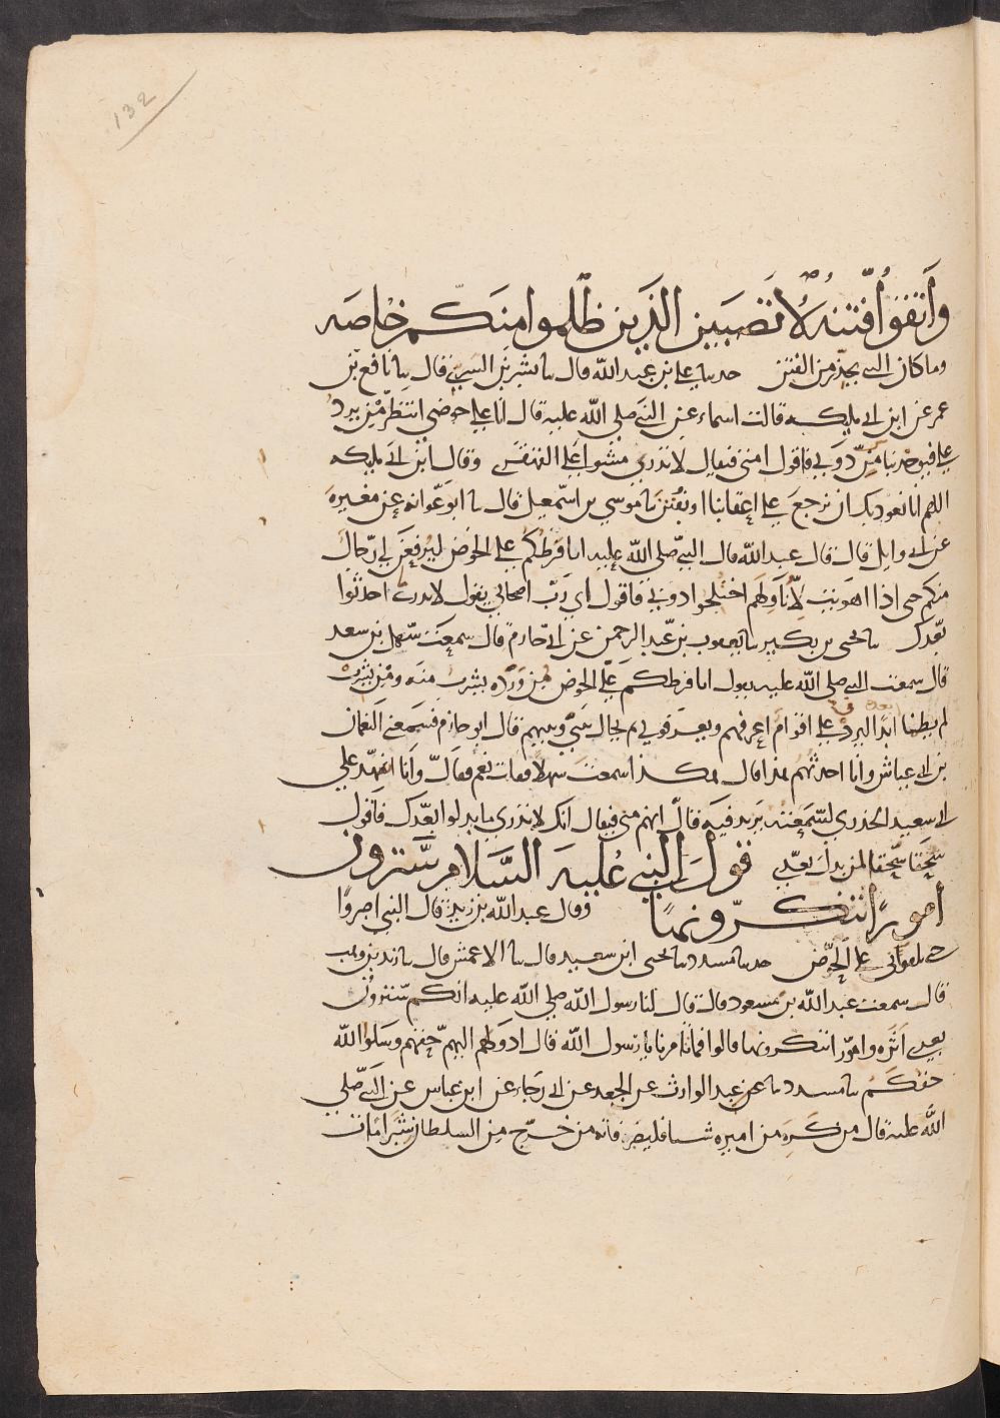 132
واتقوا فتنة لا تصيبن الذين ظلموا منكم خاصه
وما كان النبي يحذر من الفتن حدثنا علي بن عبد الله قال نا بشر بن السري قال نا نافع بن
عمر عن ابن ابي مليكه قالت اسماء عن النبي صلي الله عليه قال انا علي حوضي انتظر من يرد
علي فيوخذ بناس من دوني فاقول امتي فيقال لا تدري مشوا علي القهقري وقال ابن ابي مليكه
اللهم انا نعوذ بك ان نرجع علي اعقابنا او نفتن نا موسي بن اسمعيل قال نا ابو عوانه عن مغيره
عن ابي وايل قال قال عبد الله قال النبي صلي الله عليه انا فرطكم علي الحوض ليرفعن لي رجال
منكم حتى اذا اهويت لاناولهم اختلجوا دوني فاقول اي رب اصحابي يقول لا تدري ما احدثوا
بعدك نا يحيى بن بكير نا يعقوب بن عبد الرحمن عن ابي حازم قال سمعت سهل بن سعد
قال سمعت النبي صلي الله عليه يقول انا فرطكم علي الحوض من ورده يشرب منه ومن يشرب
لم يظما ابدا ليرد علي اقوام اعرفهم ويعرفوني ثم يحال بيني وبينهم قال ابو حازم فسمعني النعمان
بن ابي عياش وانا احدثهم هذا فقال هكذا سمعت سهلا فقلت نعم فقال وانا اشهد علي
ابي سعيد الخدري لسمعته يزيد فيه قال انهم مني فيقال انك لا تدري ما بدلوا بعدك فاقول
سحقا سحقا لمن بدل بعدي قول النبي عليه السلام سترون
امورا تنكرونها وقال عبد الله بن زيد قال النبي اصبروا
حتى تلقوني علي الحوض حدثنا مسدد نا يحيى ابن سعيد قال نا الاعمش قال نا زيد بن وهب
قال سمعت عبد الله بن مسعود قال قال لنا رسول الله صلي الله عليه انكم سترون
بعدي اثره وامورا تنكرونها قالوا فما تامرنا يا رسول الله قال ادوا لهم اليهم حقهم وسلوا الله
حقكم نا مسدد نا عن عبد الوارث عن الجعد عن ابي رجاء عن ابن عباس عن النبي صلي
الله عليه قال من كره من اميره شيئا فليصبر فانه من خرج من السلطان شبرا مات